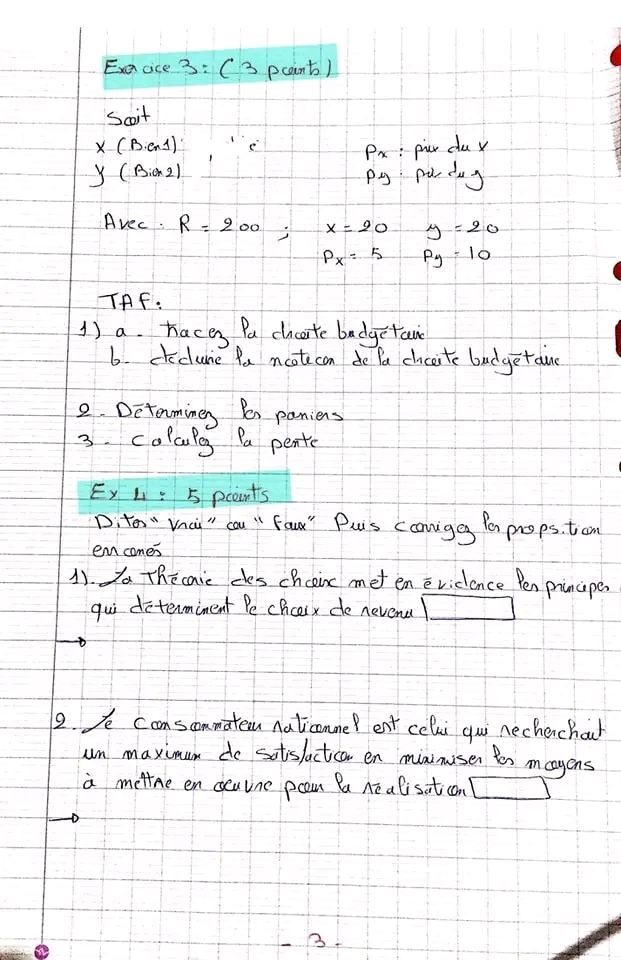 Exercice 3 : ( 3 points )
Soit
x ( Bien 1 )
y ( Bien 2 ) ,
Px : prix du x
Py : prix du y
Avec : R = 200 ; x = 20 y = 20
Px = 5 Py = 10
TAF :
1) a - tracez la droite budgétaire
b - déduire la notion de la droite budgétaire
2 - Déterminez les paniers
3 - calculez la pente
Ex 4 : 5 points
Dites " Vrai " ou " Faux " Puis corrigez les proposition
erronés
1). La Théorie des choix met en évidence les principes
qui déterminent le choix de revenu
→
2. Le consommateur rationnel est celui qui recherchait
un maximum de satisfaction en minimiser les moyens
à mettre en oeuvre pour la réalisation
→
- 3 -